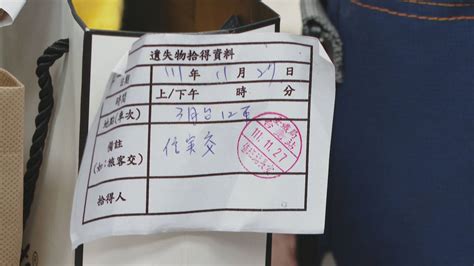 遺失物拾得資料
日期 111年11月27日
時間 上/下午 時 分
地點(車次) 3月台12車
備註
(如:旅客交)
拾得人
111.11.27